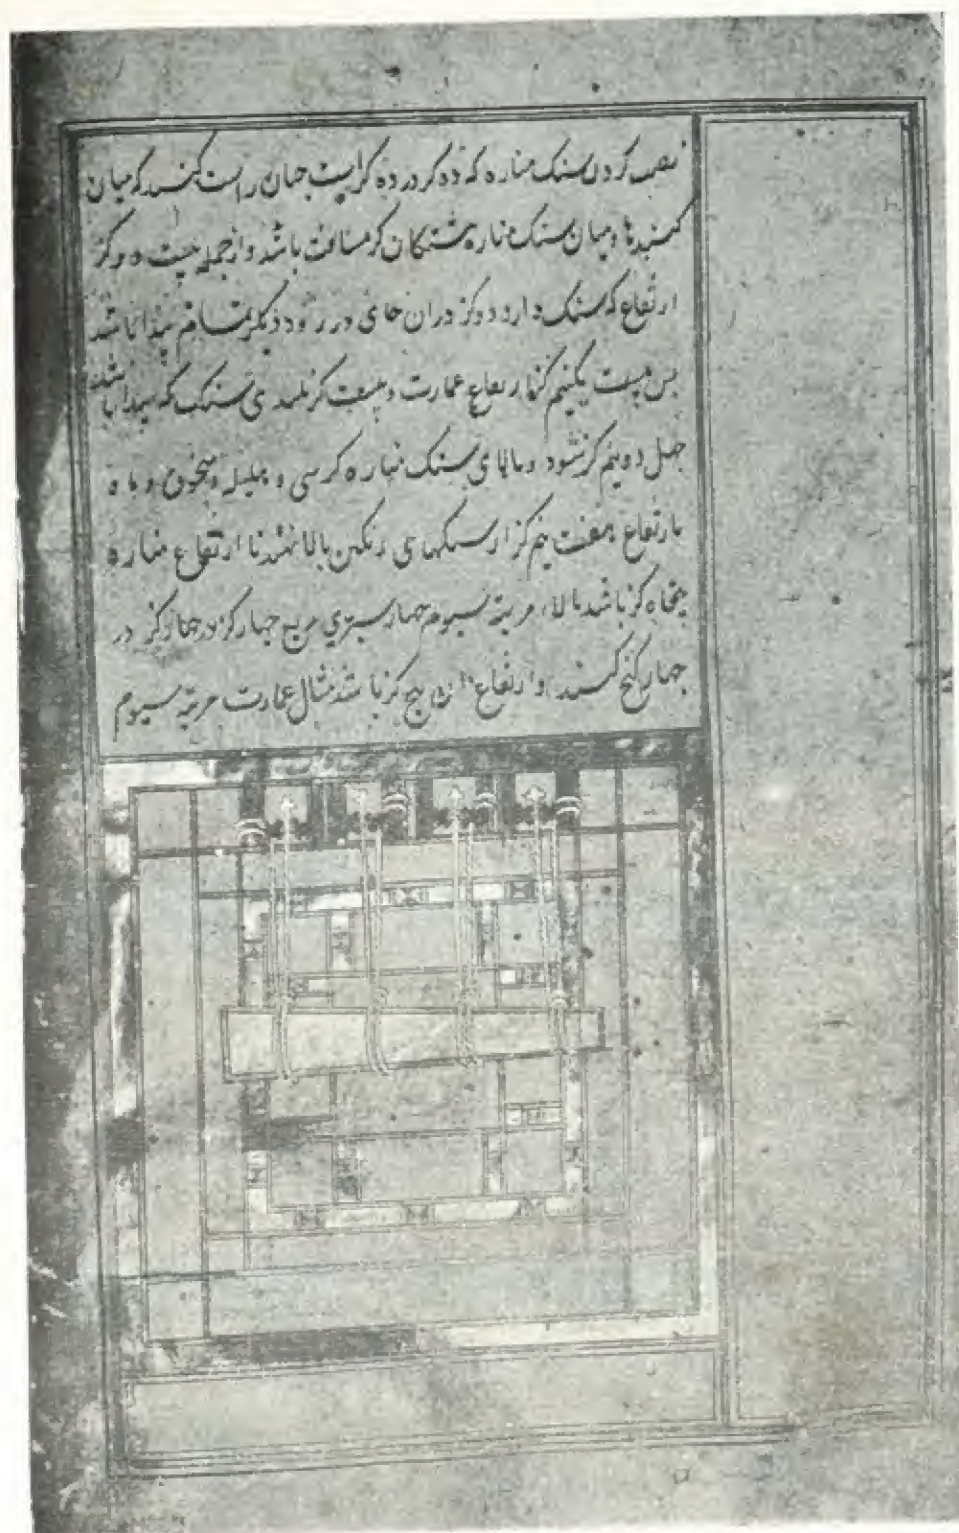 نصب کردن سنک مناره که ده کز در ده کز است جهان راست کنند که میان
کنبدها و میان سنک مناره یشتکان کز مسافت باشد و از جمله بیست دو کز
ارتفاع که سنک دارد دو کز دران جای در رود دیکر تمام پیدا باشد
بس بیست یکنیم کز ارتفاع عمارت و بیست کز بلندی سنک که پیدا باشد
جهل دو نیم کز شود و بالای سنک مناره کرسی و هلیله و
بارتفاع هفت نیم کز از سنکهای رنکین بالا نهند تا ارتفاع مناره
پنجاه کز باشد بالاء مرتبه سیوم جهار مربع جهار کز در جهار کز در
جهار کنج کنند و ارتفاع ان پنج کز باشد مثال عمارت مرتبه سیوم